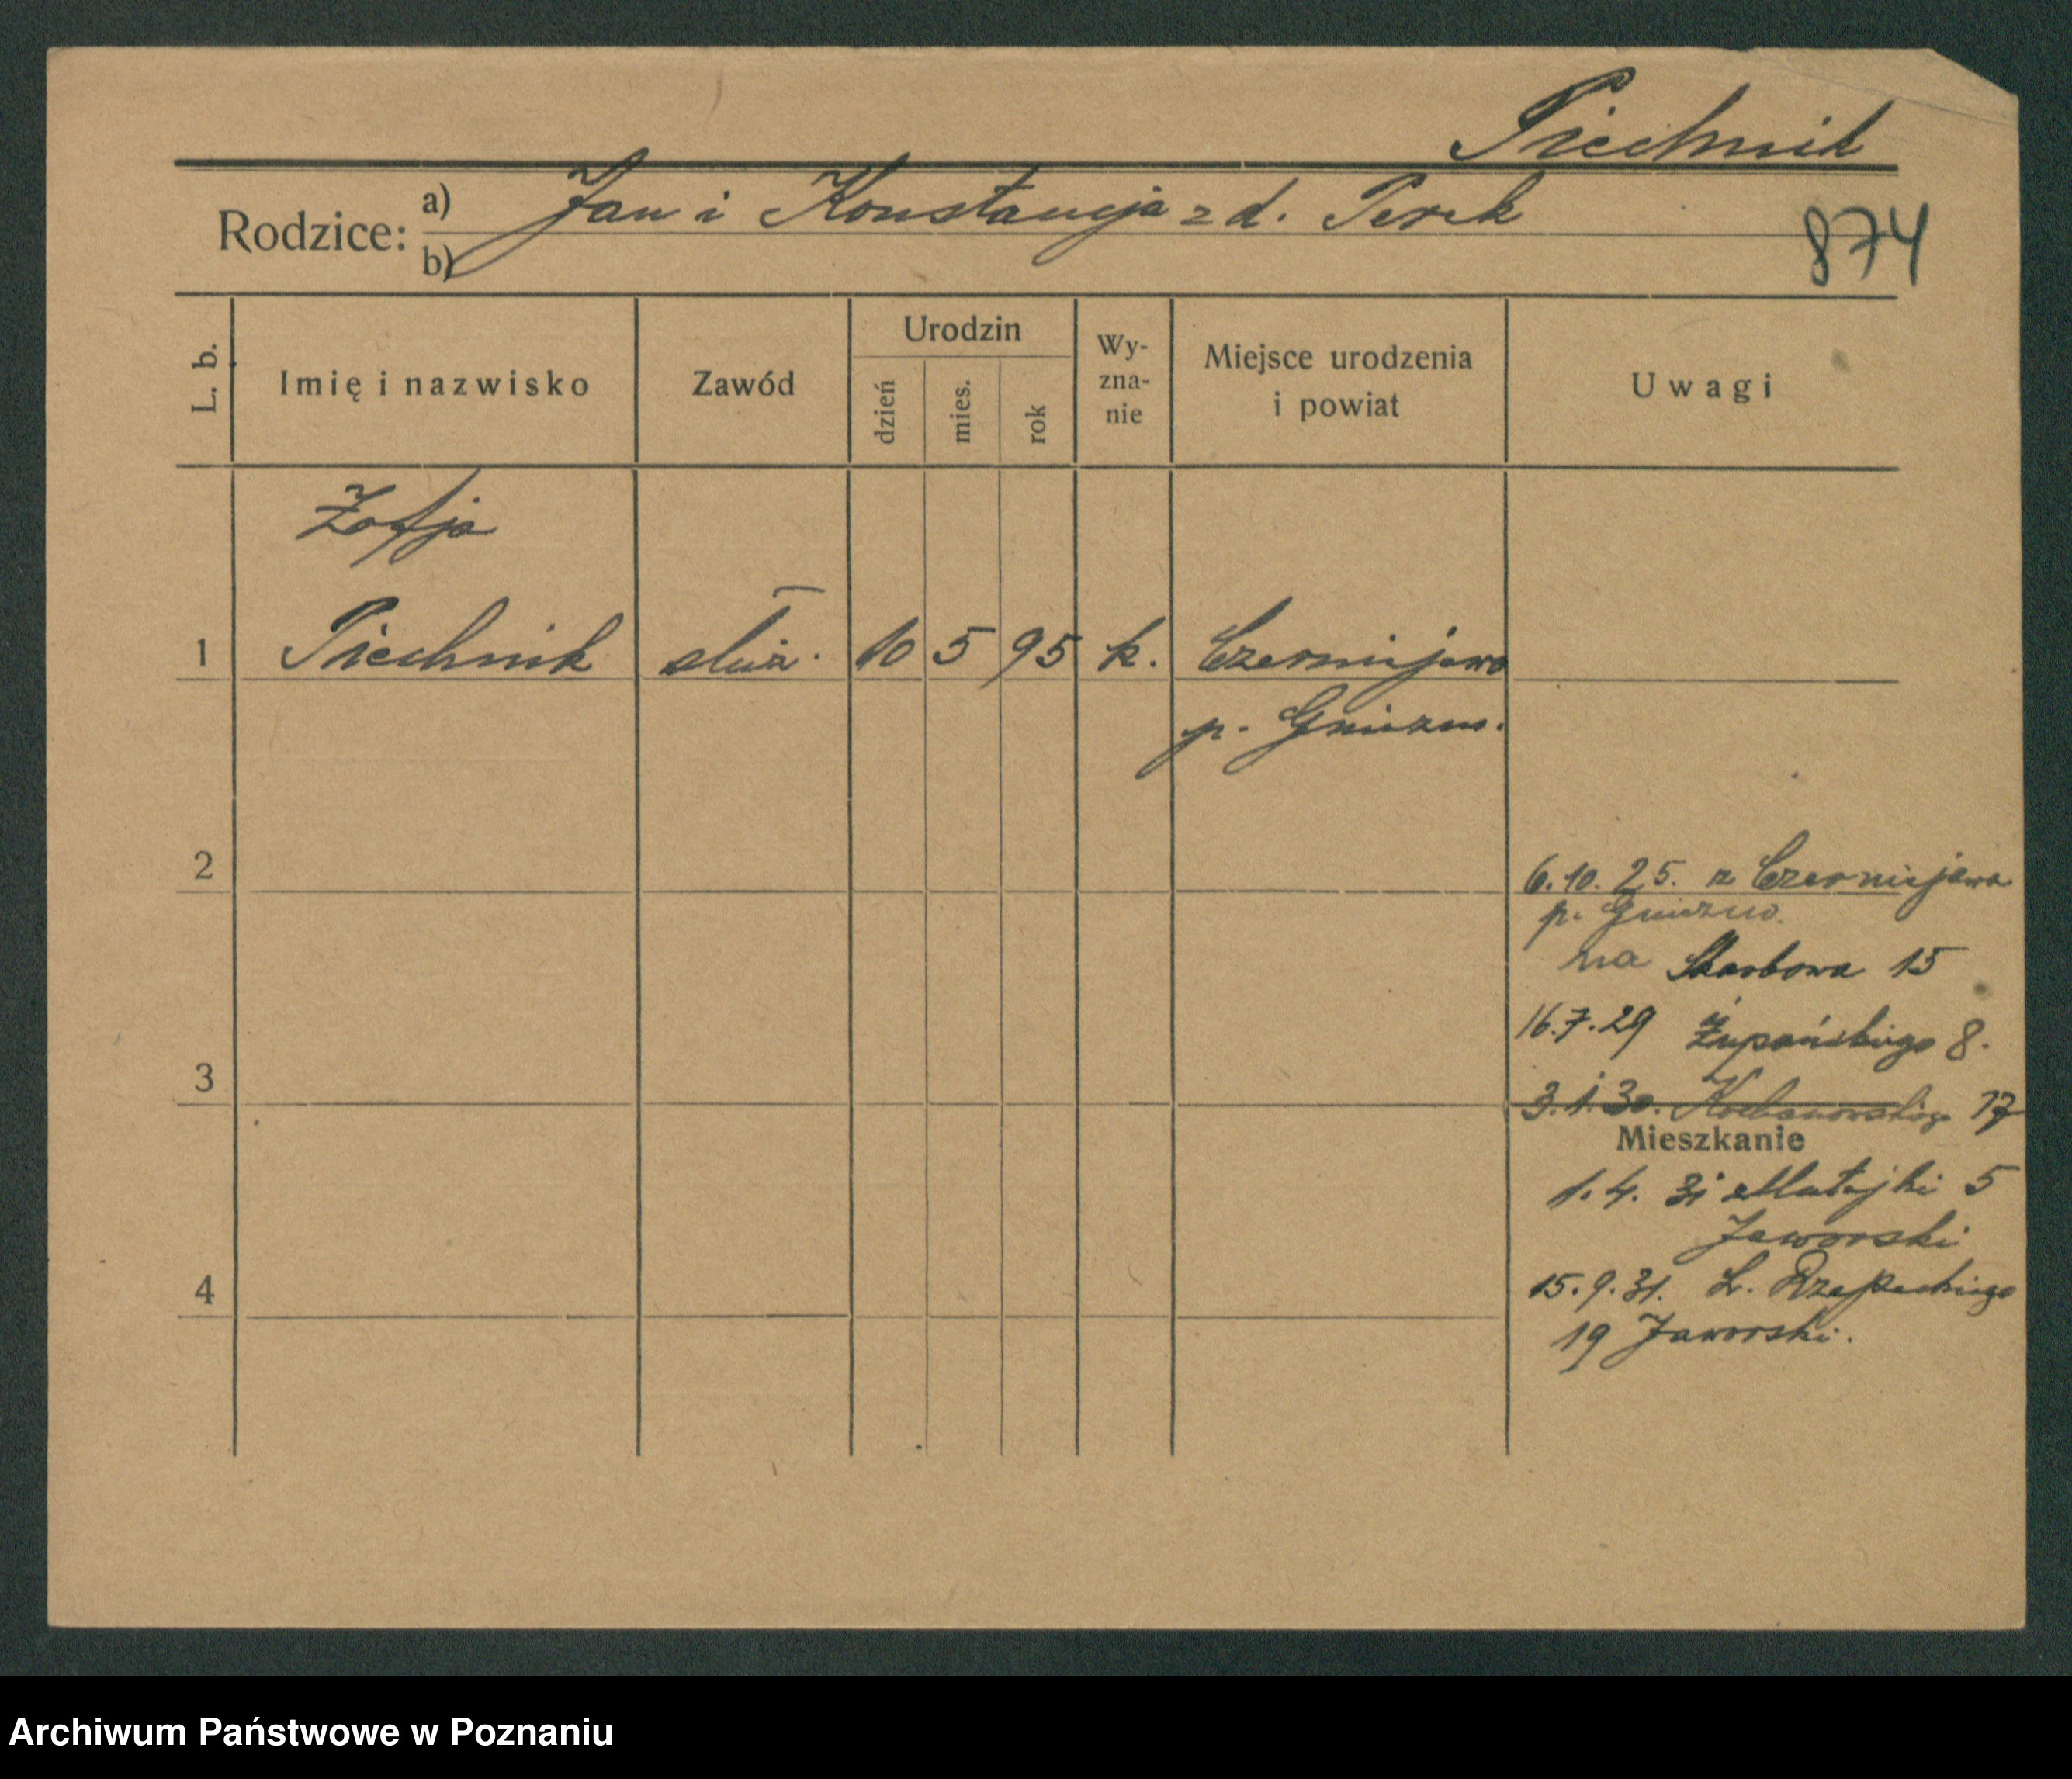 Piechnik
Rodzice: a) Jan i Konstancja z d. Perek
b)
874
L. b. Imię i nazwisko Zawód Urodzin dzień mies. rok Wy-zna-nie Miejsce urodzenia i powiat Uwagi
Zofja
1 Piechnik służ. 10 5 95 k. Czerniejewo
p. Gniezno.
2
6.10.25. z Czerniejewa
p. Gniezno.
na Skarbowa 15
16.7.29 Żupańskiego 8.
3
3.1.30. Kochanowskiego 17
Mieszkanie
1.4.31 Matejki 5
Jaworski
4
15.9.31. L. Rzepeckiego
19 Jaworski.
Archiwum Państwowe w Poznaniu